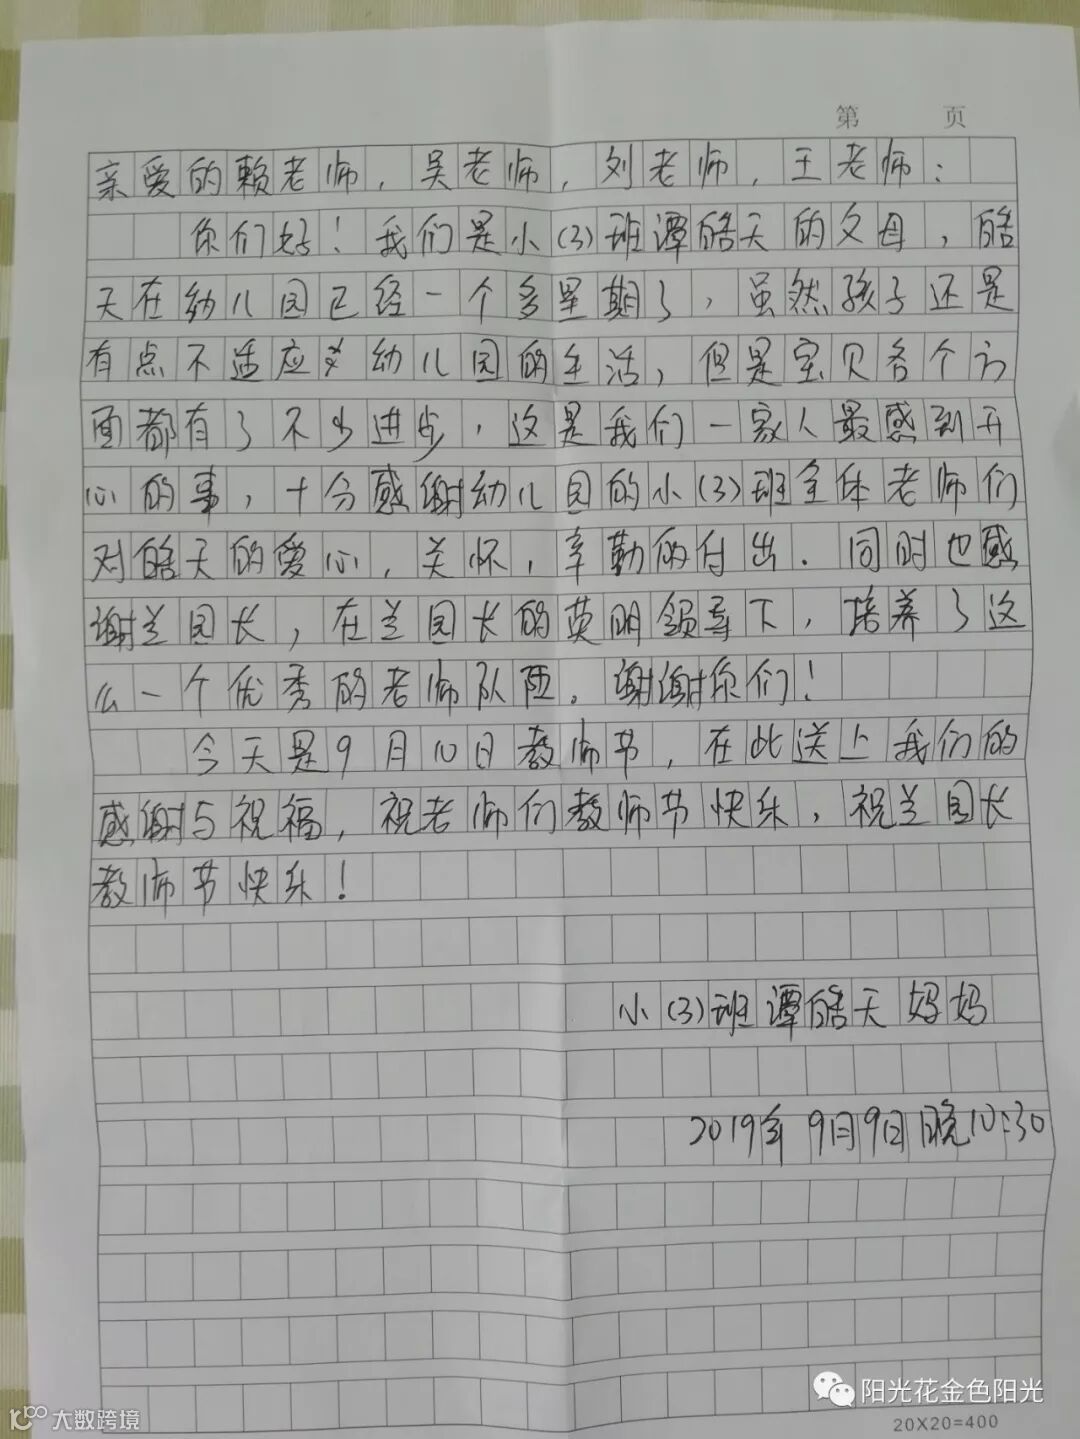 第 页
亲爱的赖老师，吴老师，刘老师，王老师：
你们好！我们是小(3)班谭皓天的父母，皓
天在幼儿园已经一个多星期了，虽然孩子还是
有点不适应幼儿园的生活，但是宝贝各个方
面都有了不少进步，这是我们一家人最感到开
心的事，十分感谢幼儿园的小(3)班全体老师们
对皓天的爱心，关怀，辛勤的付出．同时也感
谢兰园长，在兰园长的英明领导下，培养了这
么一个优秀的老师队伍。谢谢你们！
今天是9月10日教师节，在此送上我们的
感谢与祝福，祝老师们教师节快乐，祝兰园长
教师节快乐！
小(3)班谭皓天妈妈
2019年9月9日晚10:30
阳光花金色阳光
大数跨境
20X20=400